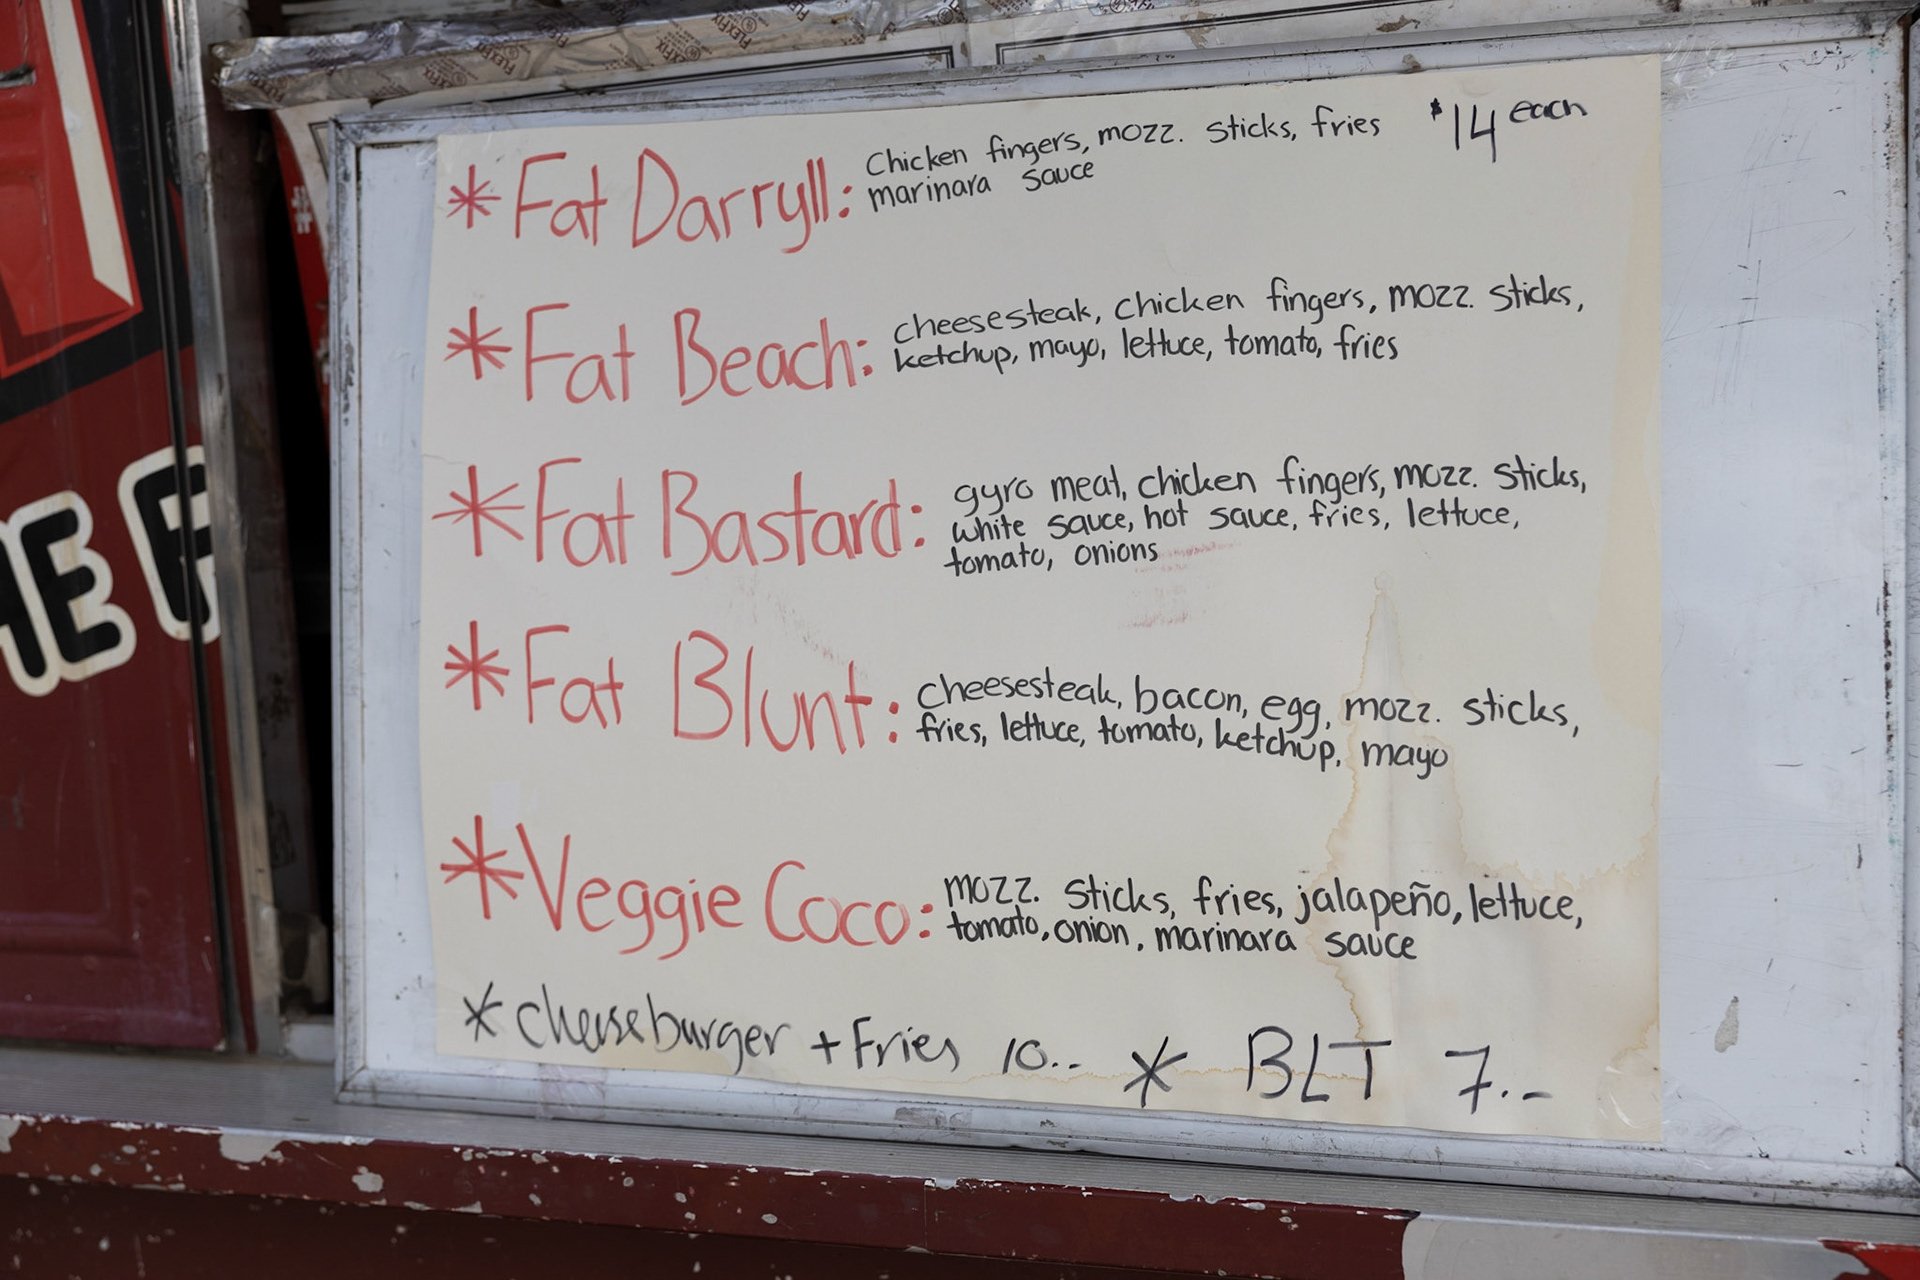 FLEXFIX FLEXFIX FLEXFIX
HE
* Fat Darryll: Chicken fingers, mozz. sticks, fries $14 each
marinara sauce
* Fat Beach: cheesesteak, chicken fingers, mozz. sticks,
ketchup, mayo, lettuce, tomato, fries
* Fat Bastard: gyro meat, chicken fingers, mozz. sticks,
white sauce, hot sauce, fries, lettuce,
tomato, onions
* Fat Blunt: cheesesteak, bacon, egg, mozz. sticks,
fries, lettuce, tomato, ketchup, mayo
* Veggie Coco: mozz. sticks, fries, jalapeño, lettuce,
tomato, onion, marinara sauce
* cheeseburger + Fries 10.. * BLT 7.-